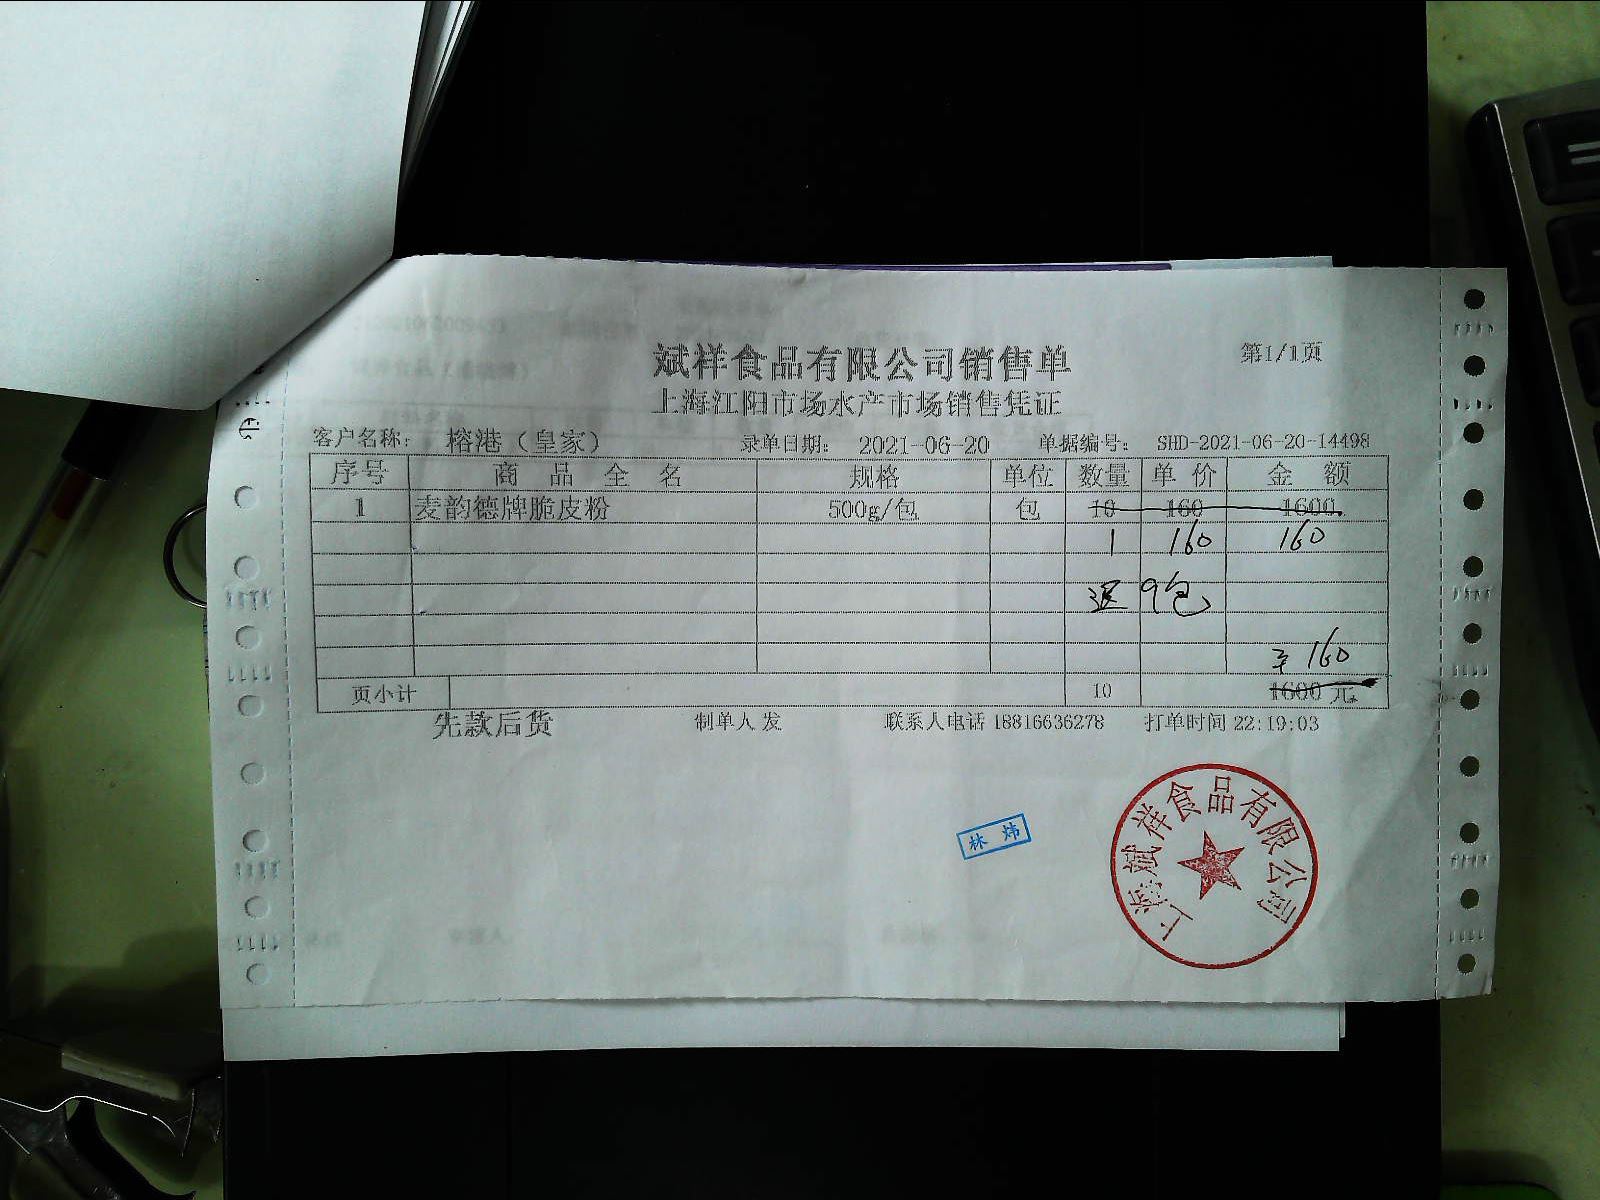 斌祥食品有限公司销售单
第1/1页
上海江阳市场水产市场销售凭证
客户名称： 榕港（皇家） 录单日期： 2021-06-20 单据编号： SHD-2021-06-20-14498
序号 商品全名 规格 单位 数量 单价 金额
1 麦韵德牌脆皮粉 500g/包 包 10 160 1600.
1 160 160
退 9包
¥ 160
页小计 10 1600 元
先款后货 制单人 发 联系人电话 18816636278 打单时间 22:19:03
上海斌祥食品有限公司
林炜